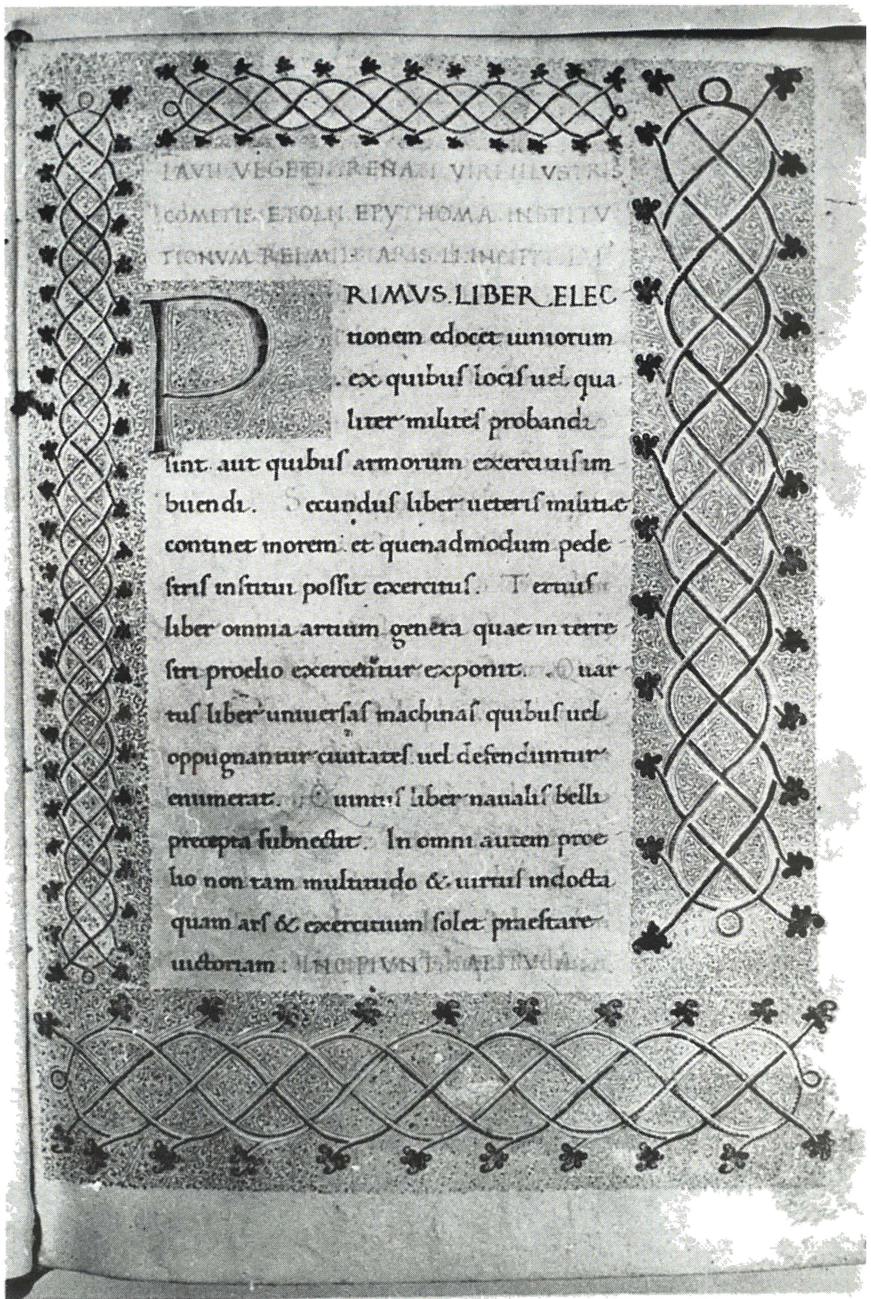 FLAVII VEGETII RENATI VIRI ILLVSTRIS
COMITIS ET OLII EPVTHOMA INSTITV
TIONVM REI MILITARIS LI INCIPIT
PRIMVS LIBER ELEC
tionem edocet iuniorum
ex quibus locis uel qua
liter milites probandi
sint aut quibus armorum exercitiis im
buendi. Secundus liber ueteris militiae
continet morem. et quenadmodum pede
stris institui possit exercitus. Tertius
liber omnia artium genera quae in terre
stri proelio exercentur exponit. Quar
tus liber uniuersas machinas quibus uel
oppugnantur ciuitates uel defenduntur
enumerat. Quintus liber naualis belli
precepta subnectit. In omni autem proe
lio non tam multitudo & uirtus indocta
quam ars & exercitium solet praestare
uictoriam: INCIPIVNT